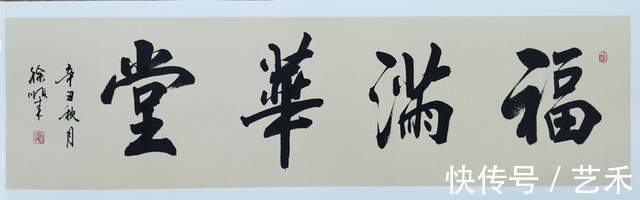 福滿華堂
辛丑秋月
徐
快传号 / 艺禾